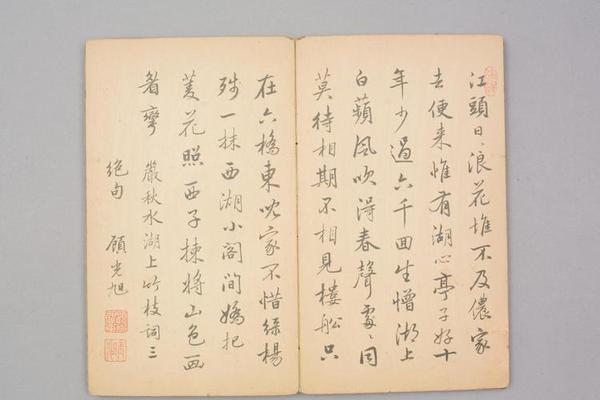 江頭日〻浪花堆不及儂家
去便来惟有湖心亭子好十
年少過六千回生憎湖上
白蘋風吹得春聲處〻同
莫待相期不相見樓船只
在六橋東家不惜絲楊
殘一抹西湖小閣間嬌把
菱花照西子揀將山色画
眉彎 嚴秋水湖上竹枝詞三
絕句 顧光旭